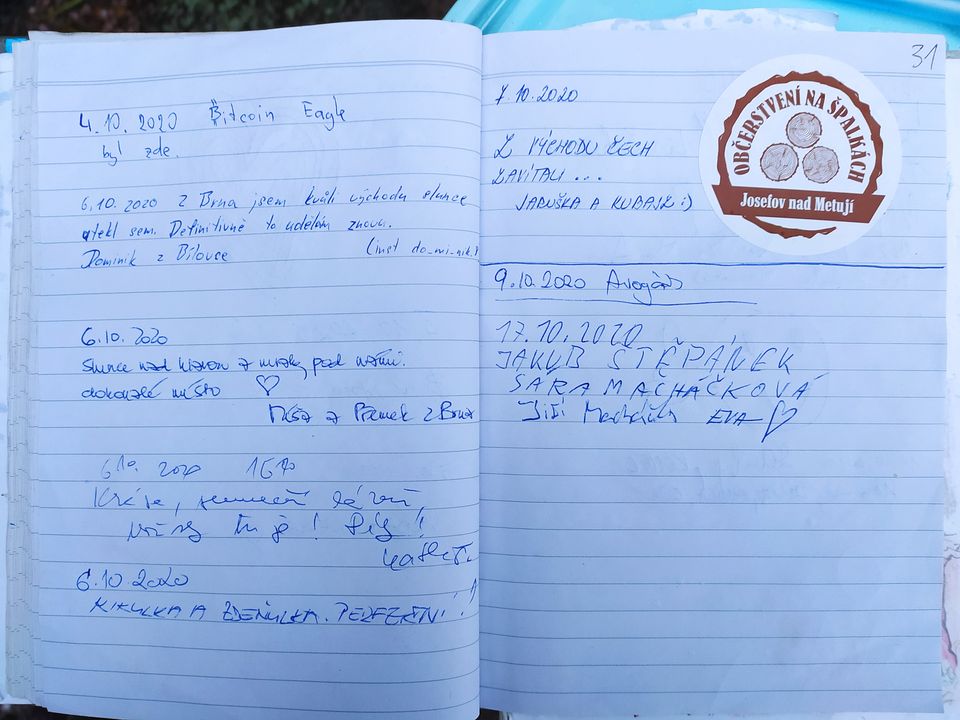 4.10.2020 Bitcoin Eagle
byl zde.
6.10.2020 z Brna jsem kvůli východu slunce
utekl sem. Definitivně to udělám znovu.
Dominik z Bílovce (inst do_mi_nik.
6.10.2020
Slunce nad hlavou a mraky pod námi.
dokonalé místo ♡
a Přemek z Brna
6.10. 2020
tu je!
6.10.2020
KIKULKA A ZDEŇULKA. PERFEKTNÍ!
31
7.10.2020
Z VÝCHODU ČECH
ZAVÍTALI...
JARUŠKA A KUBAJZ :)
OBČERSTVENÍ NA ŠPALKÁCH
Josefov nad Metují
9.10.2020
17.10.2020
JAKUB ŠTĚPÁNEK
SÁRA MACHÁČKOVÁ
Jiří EVA ♡